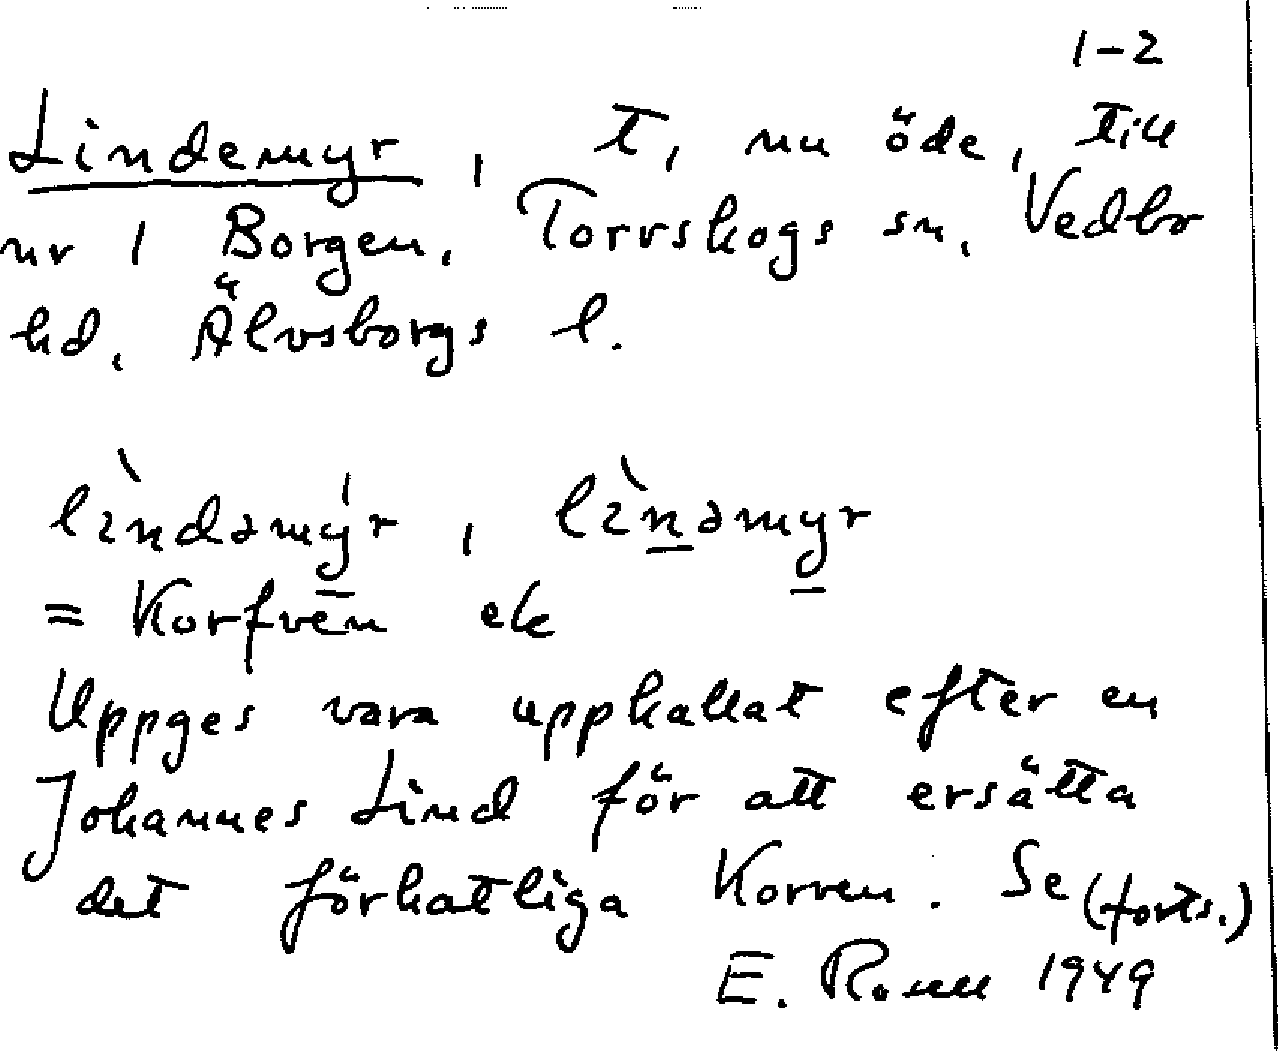 1-2
Lindemyr, t, nu öde, till
nr 1 Borgen, Torrskogs sn, Vedbo
hd, Älvsborgs l.
lìndəmý̲r, lìn̲əmy̲r
= Korfven ek
Uppges vara uppkallat efter en
Johannes Lind för att ersätta
det förhatliga Korven. Se (forts.)
E. 1949